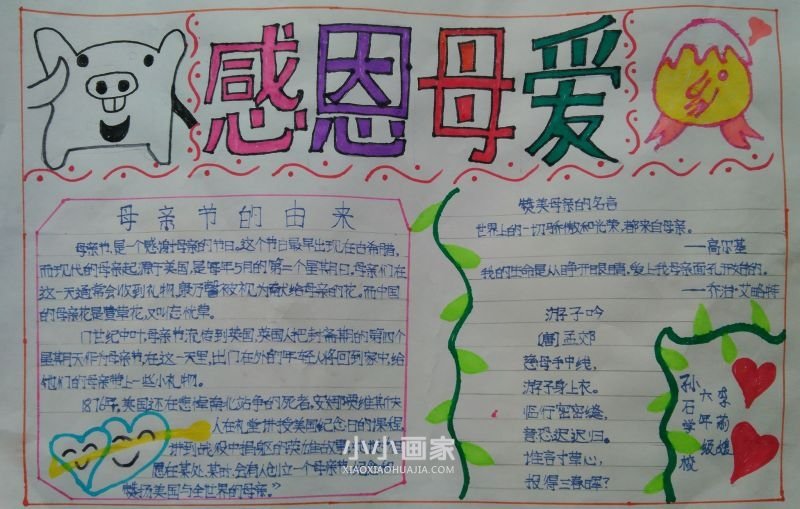 感恩母爱
母亲节的由来
母亲节,是一个感谢母亲的节日。这个节日最早出现在古希腊,
而现代的母亲起源于美国,是每年5月的第二个星期日,母亲们在
这一天通常会收到礼物,康乃馨被视为献给母亲的花。而中国
的母亲花是萱草花,又叫忘忧草。
17世纪中叶,母亲节流传到英国,英国人把封斋期的第四个
星期天作为母亲节,在这一天里,出门在外的年轻人将回到家中,给
他们的母亲带上一些小礼物。
1876年,美国还在悲悼南北战争的死者,安娜
人在礼堂讲授美国纪念日的课程,
讲到战役中捐躯的英雄故
愿在某处,某时,会有人创立一个母亲节
赞扬美国与全世界的母亲。”
赞美母亲的名言
世界上的一切骄傲和光荣,都来自母亲。
——高尔基
我的生命是从睁开眼睛,爱上我母亲面孔开始的。
——乔治·艾略特
游子吟
(唐)孟郊
慈母手中线,
游子身上衣。
临行密密缝,
意恐迟迟归。
谁言寸草心,
报得三春晖?
孙石学校
六年级
小小画家
XIAOXIAOHUAJIA.COM